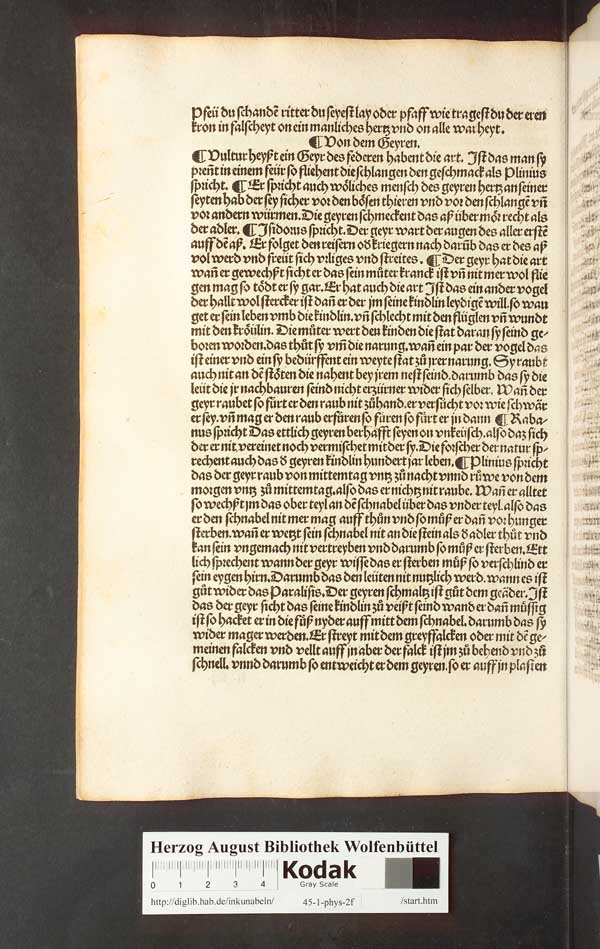 Pfeü du schandē ritter du seyest lay oder pfaff wie tragest du der eren
kron in falscheyt on ein manliches hertz vnd on alle warheyt.
¶ Von dem Geyren.
¶ Vultur heyßt ein Geyr des federen habent die art. Ist das man sy
preñt in einem feür so fliehent die schlangen den geschmack als Plinius
spricht. ¶ Er spricht auch wöliches mensch des geyren hertz an seiner
seyten hab der sey sicher vor den bösen thieren vnd vor den schlangē vñ
vor andern würmen. Die geyren schmeckent das aß über mör recht als
der adler. ¶ Isidorus spricht. Der geyr wart der augen des aller erstē
auff dē aß. Er folget den reisern od kriegern nach darūb das er des aß
vol werd vnd freüt sich vrliges vnd streites. ¶ Der geyr hat die art
wañ er gewechßt sicht er das sein můter kranck ist vñ nit mer wol flie
gen mag so tödt er sy gar. Er hat auch die art Ist das ein ander vogel
der hallt wol stercker ist dañ er der jm seine kindlin leydigē will. so wau
get er sein leben vmb die kindlin. vñ schlecht mit den flüglen vñ wundt
mit den kröülin. Die můter wert den kinden die stat daran sy seind ge-
boren worden. das thůt sy vm̄ die narung. wañ ein par der vogel das
ist einer vnd ein sy bedürffent ein weyte stat zů jrer narung. Sy raubt
auch nit an dē stöten die nahent bey jrem nest seind. darumb das sy die
leüt die jr nachbauren seind nicht erzürner wider sich selber. Wañ der
geyr raubet so fürt er den raub nit zůhand. er versücht vor wie schwär
er sey. vñ mag er den raub erfüren so füren so fürt er jn dann ¶ Raba-
nus spricht Das ettlich geyren berhafft seyen on vnkeüsch. also daz sich
der er nit vereinet noch vermischet mit der sy. Die forscher der natur sp-
rechent auch das d geyren kindlin hundert jar leben. ¶ Plinius spricht
das der geyr raub von mittemtag vntz zů nacht vnnd růwe von dem
morgen vntz zů mittemtag. also das er nichtz nit raube. Wañ er alltet
so wechßt jm das ober teyl an dē schnabel über das vnder teyl. also das
er den schnabel nit mer mag auff thůn vnd so můß er dañ vor hunger
sterben. wañ er wetzt sein schnabel nit an die stein als d adler thůt vnd
kan sein vngemach nit vertreyben vnd darumb so můß er sterben. Ett
lich sprechent wann der geyr wisse das er sterben můß so verschlind er
sein eygen hirn. Darumb das den leüten nit nutzlich werd. wann es ist
gůt wider das Paralisis. Der geyren schmaltz ist gůt dem geäder. Ist
das der geyr sicht das seine kindlin zů veißt seind wand er dañ müssig
ist so hacket er in die fůß nyder auff mitt dem schnabel. darumb das sy
wider mager werden. Er streyt mit dem greyffalcken oder mit dē ge-
meinen falcken vnd vellt auff jn aber der falck ist jm zů behend vnd zů
schnell. vnnd darumb so entweicht er dem geyren. so er auff in plasten
Herzog August Bibliothek Wolfenbüttel
0 1 2 3 4
Kodak
Gray Scale
http://diglib.hab.de/inkunabeln/ 45-1-phys-2f /start.htm